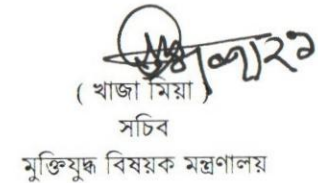 ( খাজা মিয়া )
সচিব
মুক্তিযুদ্ধ বিষয়ক মন্ত্রণালয়